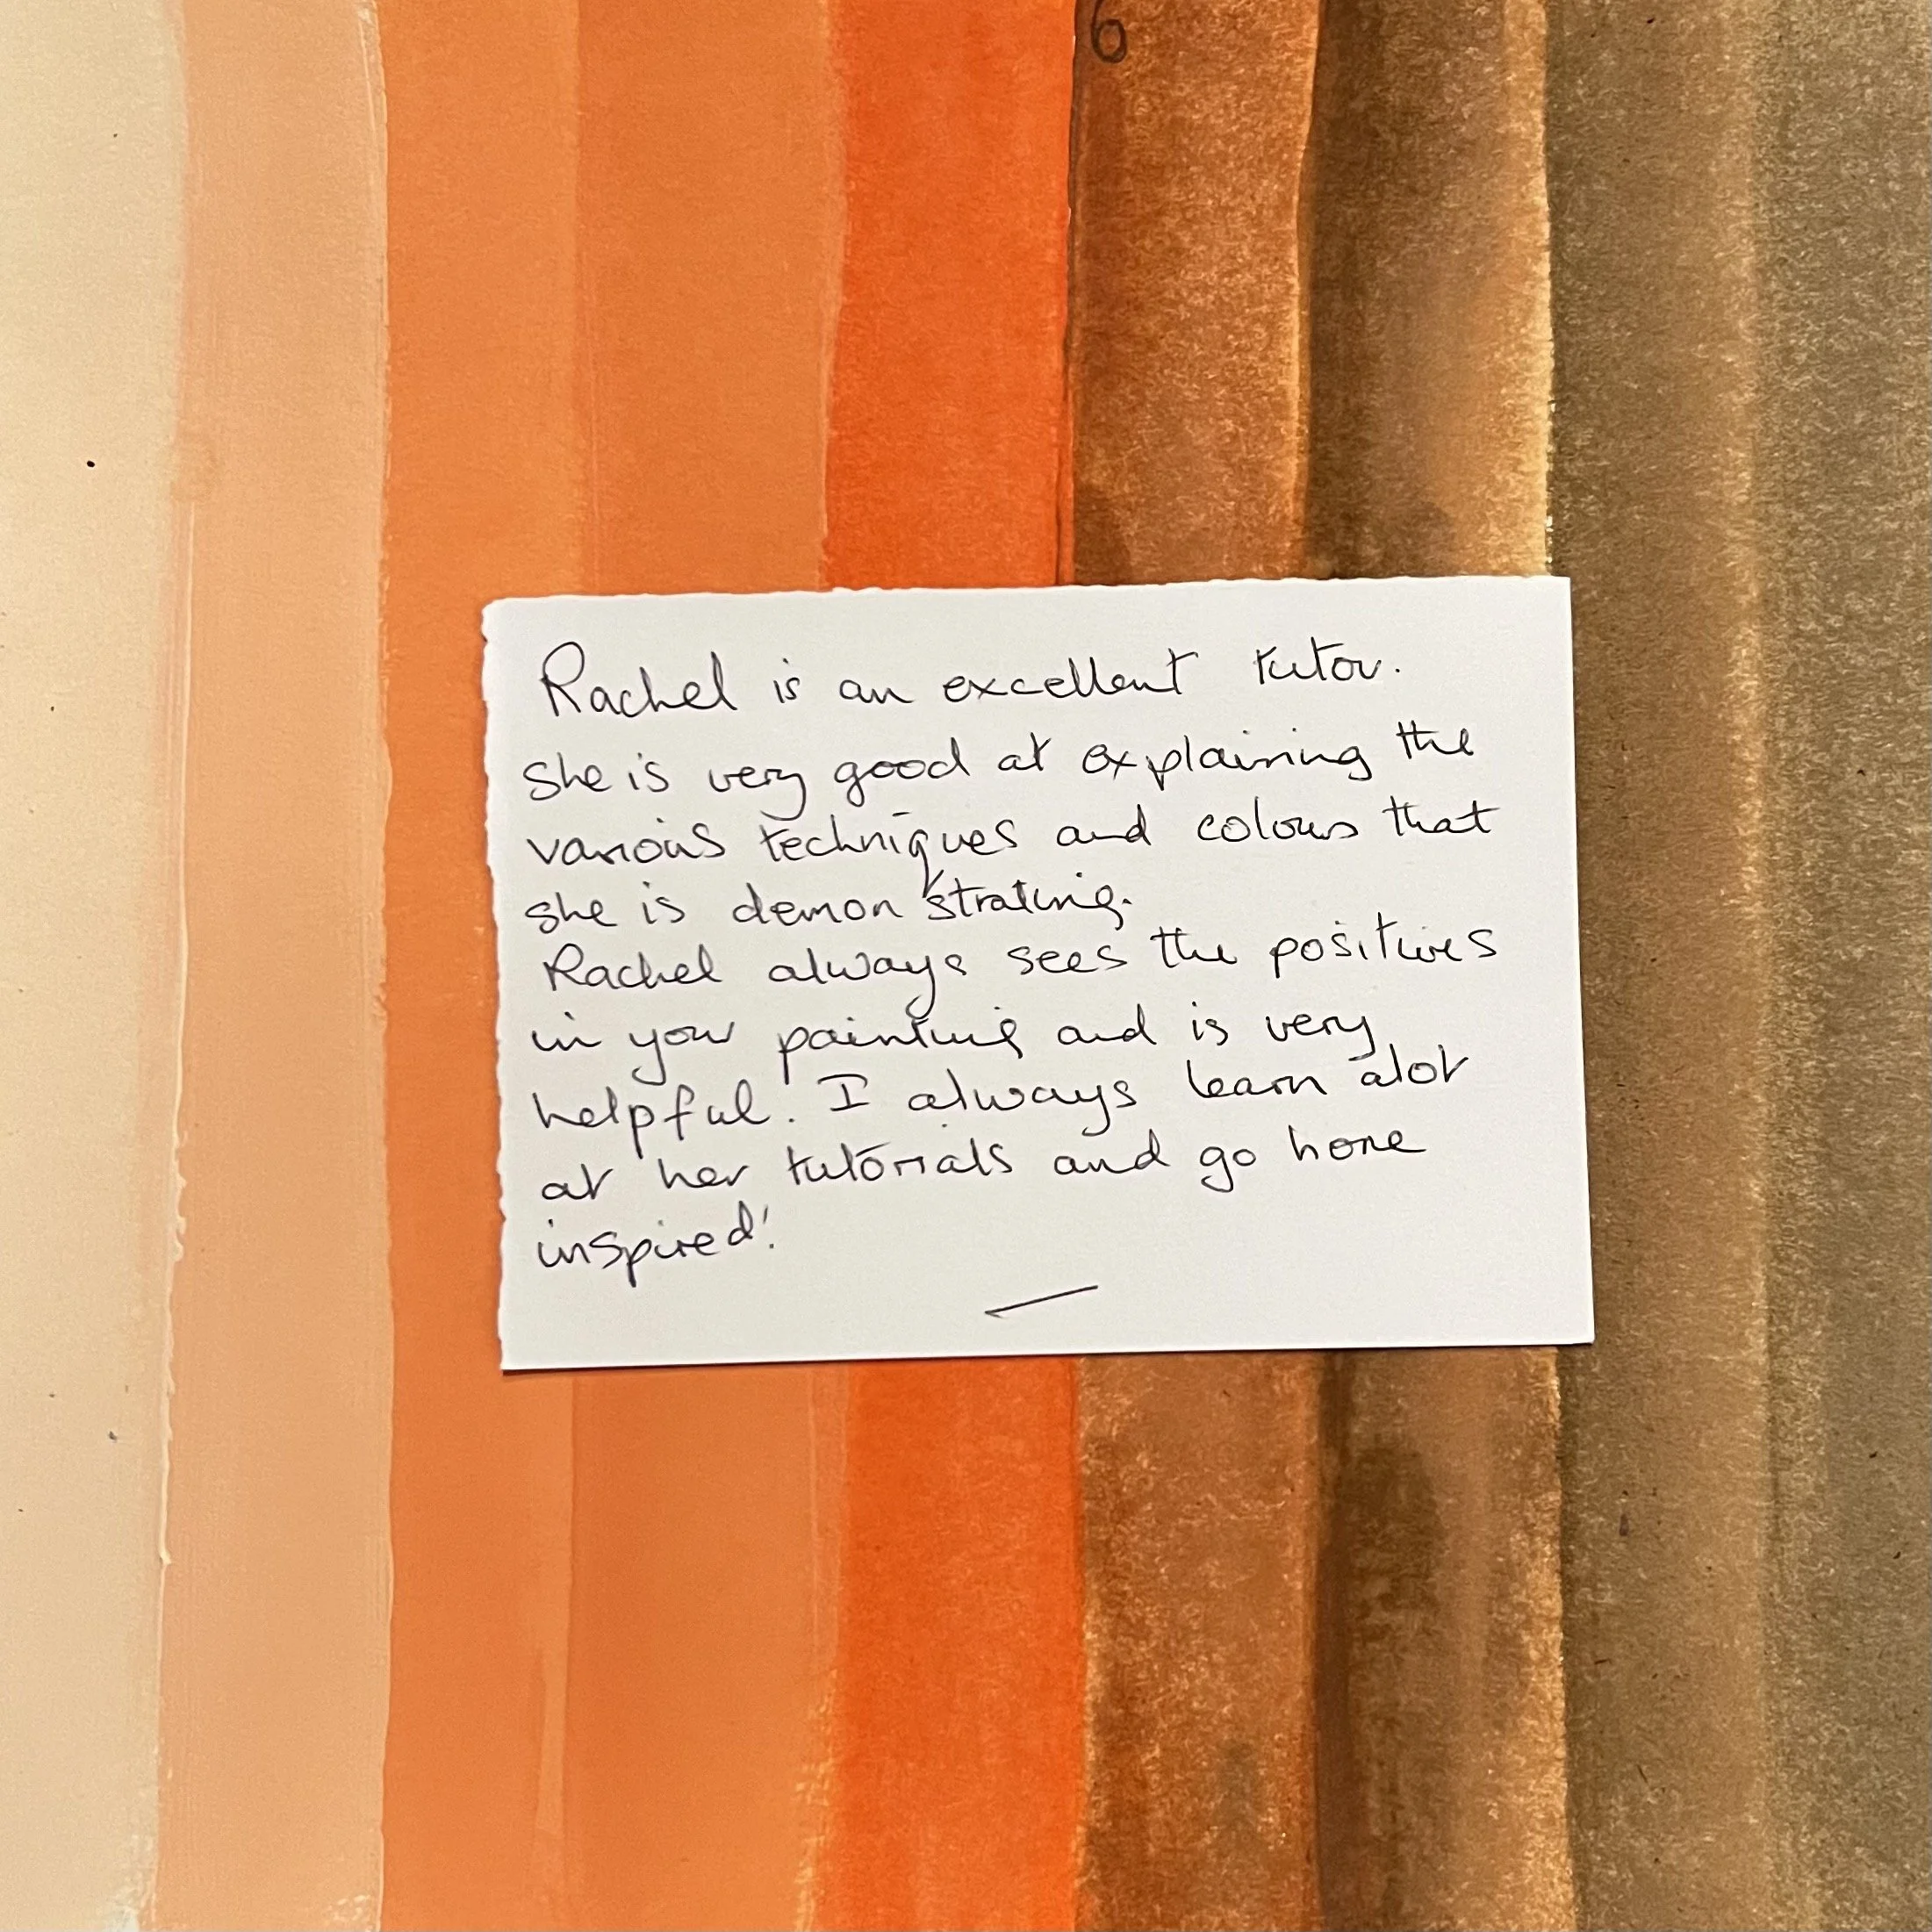 6
Rachel is an excellent tutor.
she is very good at explaining the
various techniques and colours that
she is demonstrating.
Rachel always sees the positives
in your painting and is very
helpful. I always learn alot
at her tutorials and go home
inspired!